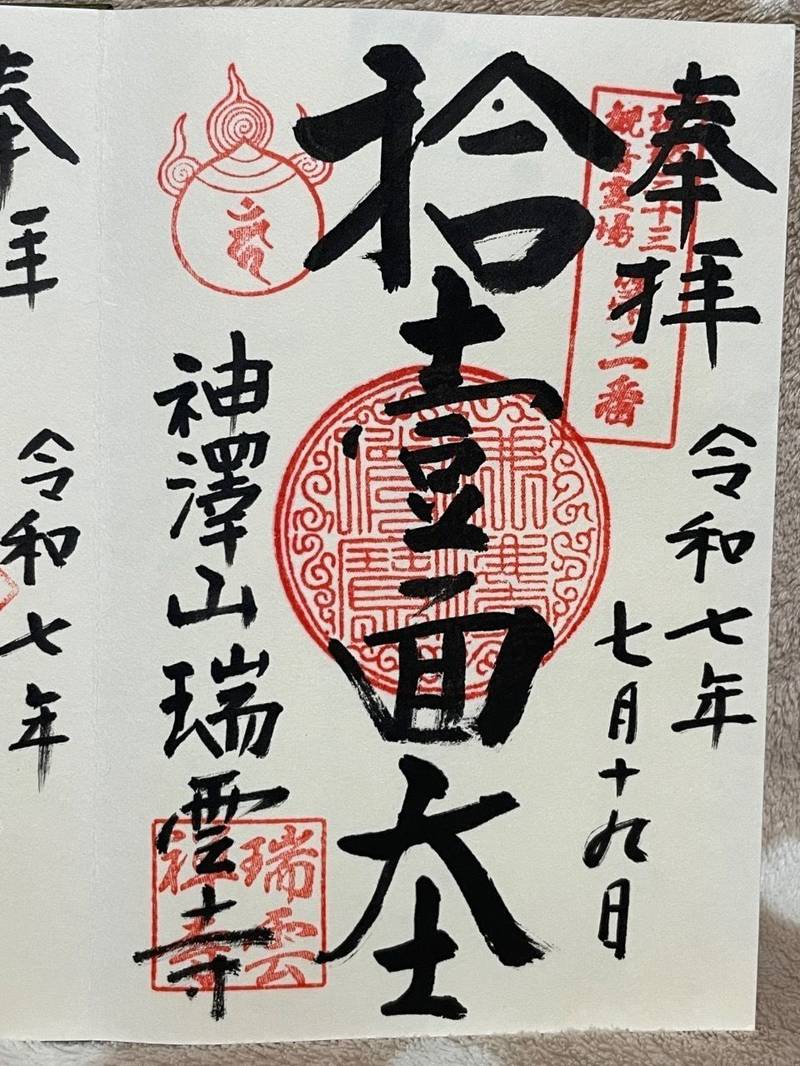 奉拝
令和七年
七月十九日
三十三
観音霊場
一番
拾壹面大士
神澤山瑞雲寺
瑞雲
奉拝
令和七年